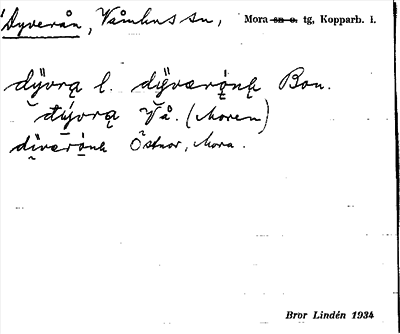 Dyverån, Våmhus sn, Mora sn o. tg, Kopparb. l.
dy̆vrą l. dy̆værǫnę Bon.
dy̆vrą Vå. (Moren)
diværǫnę Östnor, Mora.
Bror Lindén 1934